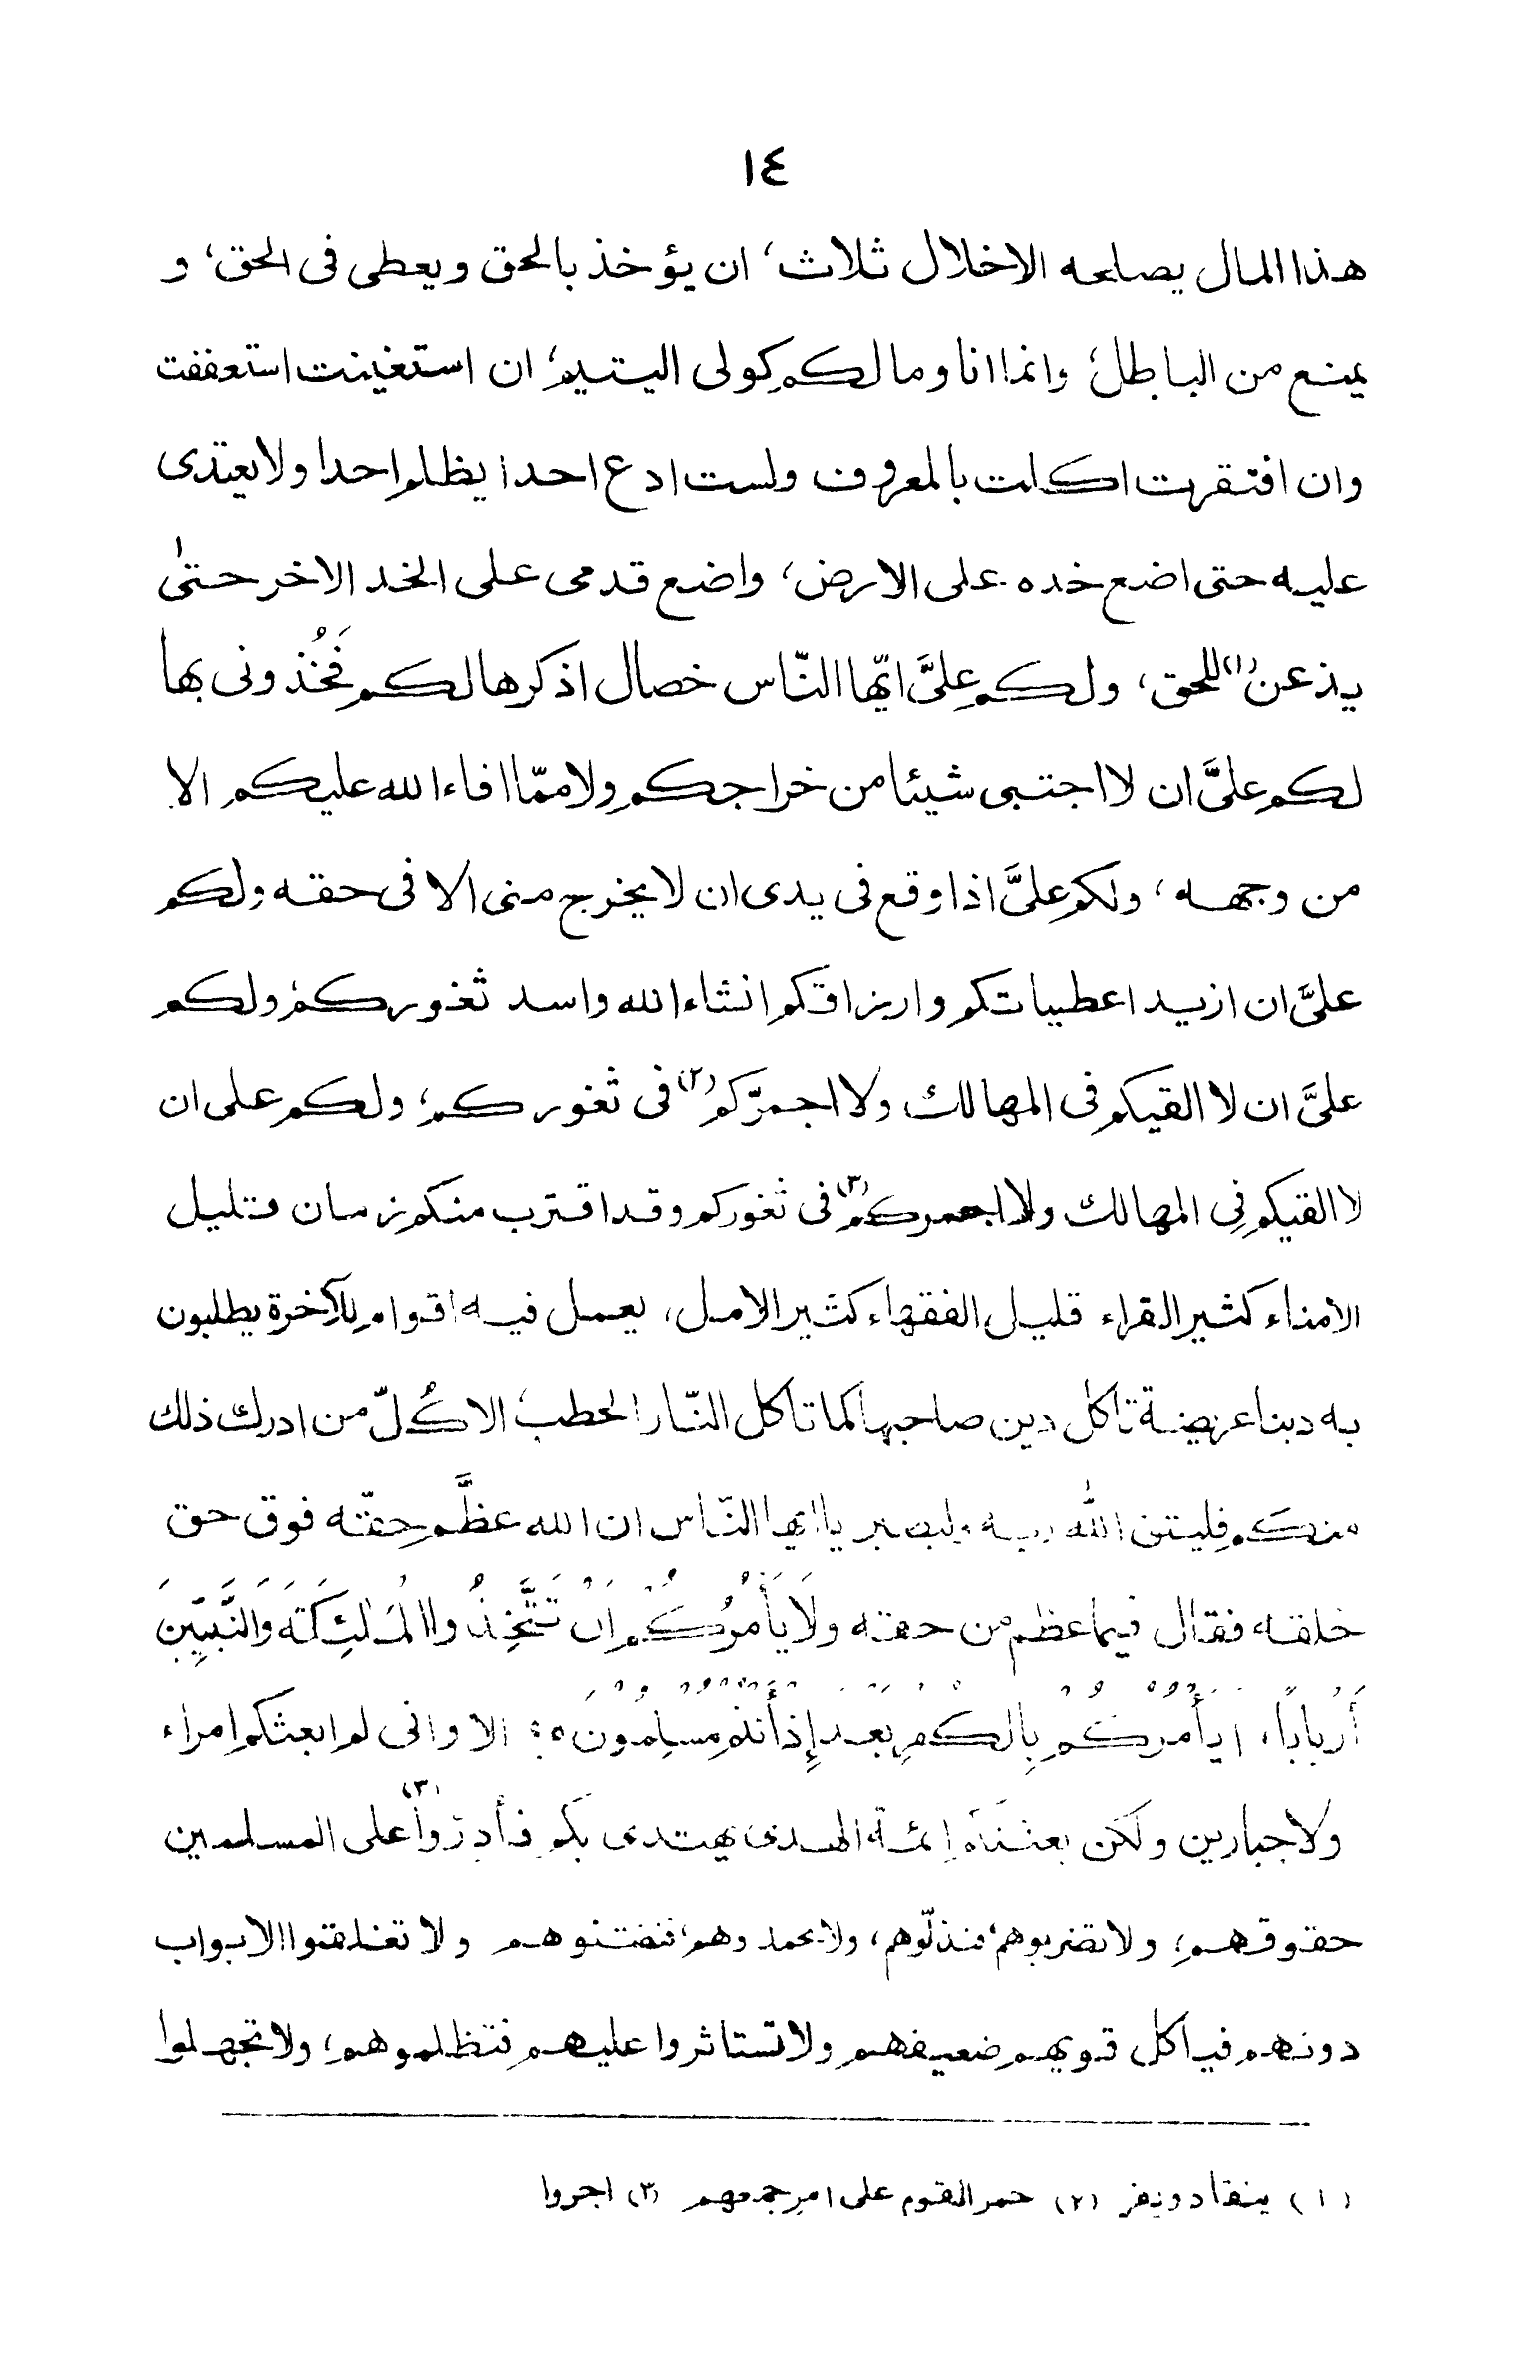 ١٤
هذا المال يصلحه الا خلال ثلاث، ان يؤخذ بالحق ويعطى فى الحق، و
يمنع من الباطل، وانما انا ومالكم كولى اليتيم، ان استغينت استعففت
وان افتقرت اكلت بالمعروف ولست ادع احدا يظلم احدا ولا يعتدى
عليه حتى اضع خده على الارض، واضع قدمى على الخد الاخر حتى
يذعن (١) للحق، ولكم علىَّ ايّها النّاس خصال اذكرها لكم فَخُذونى بها
لكم علىَّ ان لا اجتبى شيئا من خراجكم ولا ممّا افاء الله عليكم الا
من وجهه، ولكم علىَّ اذا وقع فى يدى ان لا يخرج منى الا فى حقه ولكم
علىَّ ان ازيد اعطياتكم وارزاقكم انشاء الله واسد ثغوركم ولكم
علىَّ ان لا القيكم فى المهالك ولا اجمرّكم (٢) فى ثغوركم، ولكم على ان
لا القيكم فِى المهالك ولا اجمركم (٣) فى ثغوركم وقد اقترب منكم زمان قليل
الامناء كثير القراء قليل الفقهاء كثير الامل، يعمل فيه اقوام للآخرة يطلبون
به دينا عريضة تاكل دين صاحبها كما تاكل النّار الحطب، الا كُلّ من ادرك ذلك
منكم فليتق الله ربه وليصبر يا ايها النّاس ان الله عظَّم حقّه فوق حق
خلقه فقال فيما عظم من حقه ولَا يَأْمُرُكُمْ اَنْ تَتَّخِذُوا الْمَلٰئِكَةَ وَالنَّبِيّٖنَ
أَرْبَابًا، ايَأْمُرُكُمْ بِالْكُفْرِ بَعْدَ إِذْ أَنْتُمْ مُسْلِمُونَ ه؛ الا وانى لم ابعثكم امراء
ولا جبارين ولكن بعثتكم ائمة الهدى يهتدى بكم فأدِرّوا (٣) على المسلمين
حقوقهم، ولا تضربوهم فتذلّوهم، ولا تحمدوهم، فتفتنوهم ولا تغلقوا الابواب
دونهم فياكل قويهم ضعيفهم ولا تستاثروا عليهم فتظلموهم، ولا تجهلوا
(١) ينقاد ويقر (٢) جمر القوم على امر جمعهم (٣) اجروا